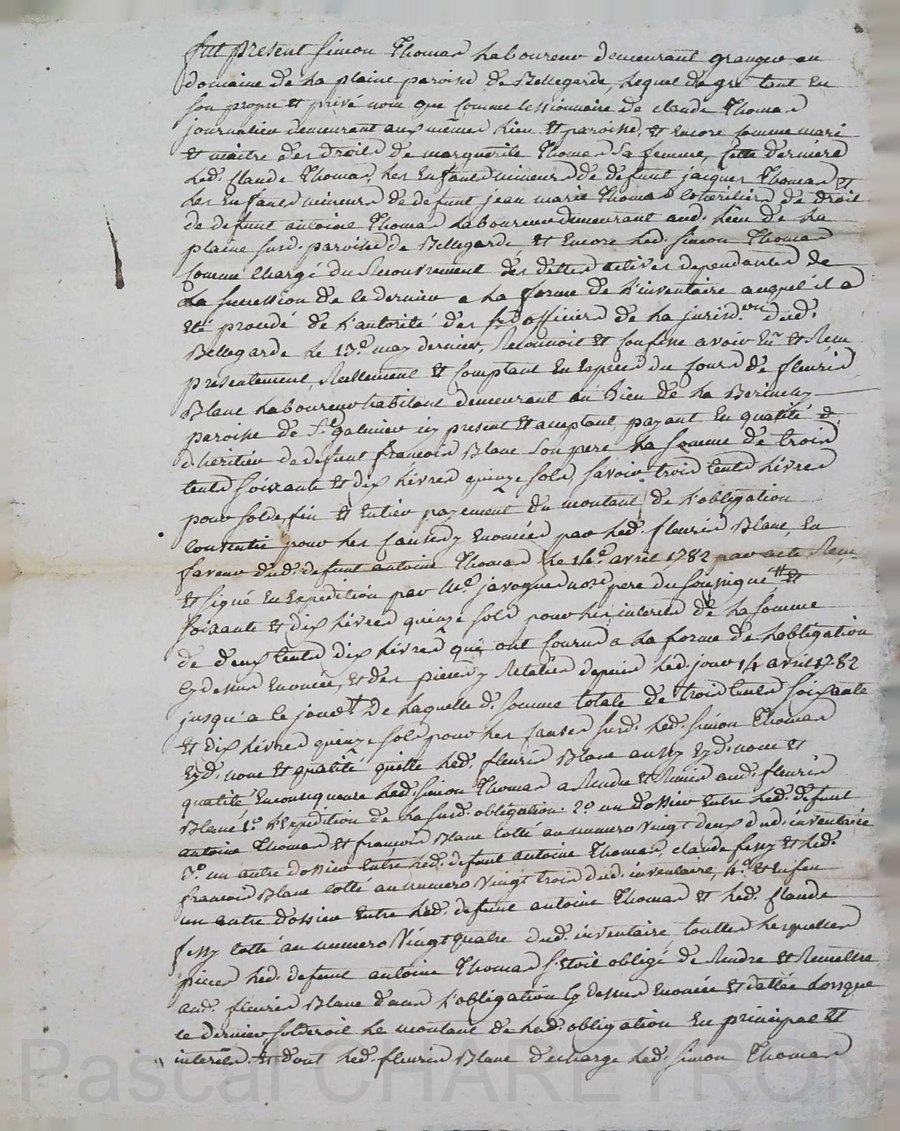 fut present Simon Thomas laboureur demeurant granger au
domaine de la plaine paroisse de Bellegarde, lequel de gré tant en
son propre et privé nom que comme cessionnaire de claude Thomas
journalier demeurant aux memes lieu et paroisse, et encore comme mari
et maitre des droits de marguerite Thomas sa femme, cette derniere
led. Claude Thomas, les enfants mineurs de defunt jacques Thomas et
les enfants mineurs de defunt jean marie Thomas cohéritiers de droit
de defunt antoine Thomas laboureur demeurant aud. lieu de la
plaine susd. paroisse de Bellegarde et encore led. Simon Thomas
comme chargé du recouvrement des dettes actives dependantes de
la succession de ce dernier a la forme de l'inventaire auquel il a
eté procédé de l'autorité des srs officiers de la jurisd.on dud.
Bellegarde le 13.e may dernier, reconnoit et confesse avoir eu et recu
presentement, reellement et comptant en especes du cours de fleuris
Blanc laboureur habitant demeurant au lieu de la
paroisse de St. galmier icy present et acceptant payant en qualité
d'heritier de defunt francois Blanc son pere la somme de trois
cents soixante et dix livres quinze sols, savoir trois cents livres
pour solde, fin et entier payement du montant de l'obligation
consentie pour les causes y enoncées par led. fleuris Blanc, en
faveur dud. defunt antoine Thomas le 14.e avril 1782 par acte recu
et signé en expedition par M.e javogues not.e pere du soussigné et
soixante et dix livres quinze sols pour les interets de la somme
de deux cents dix livres qui ont couru a la forme de l'obligation
cy dessus enoncée, et des pieces y relatées depuis led. jour 14 avril 1782
jusqu'a ce jour. De laquelle d. somme totale de trois cents soixante
et dix livres quinze sols pour les causes susd. led. Simon Thomas
esd. noms et qualités quitte led. fleuris Blanc aussy esd. noms et
qualité en consequence led. Simon Thomas a rendu et remis aud. fleuris
Blanc 1.o l'expedition de la susd. obligation. 2.o un dossier entre led. defunt
antoine Thomas et francois Blanc cotté au numero vingt deux dud. inventaire
3.o un autre dossier entre led. defunt antoine Thomas, claude fessy et led.
francois Blanc cotté au numero vingt trois dud. inventaire, 4.o et enfin
un autre dossier entre led. defunt antoine Thomas et led. claude
fessy cotté au numero vingt quatre dud. inventaire toutes lesquelles
pieces led. defunt antoine Thomas s'etoit obligé de rendre et remettre
aud. fleuris Blanc dans l'obligation cy dessus enoncée et dattée lorsque
ce dernier solderoit le montant de lad. obligation en principal et
interets. et dont led. fleuris Blanc decharge led. Simon Thomas
Pascal CHAREYRON